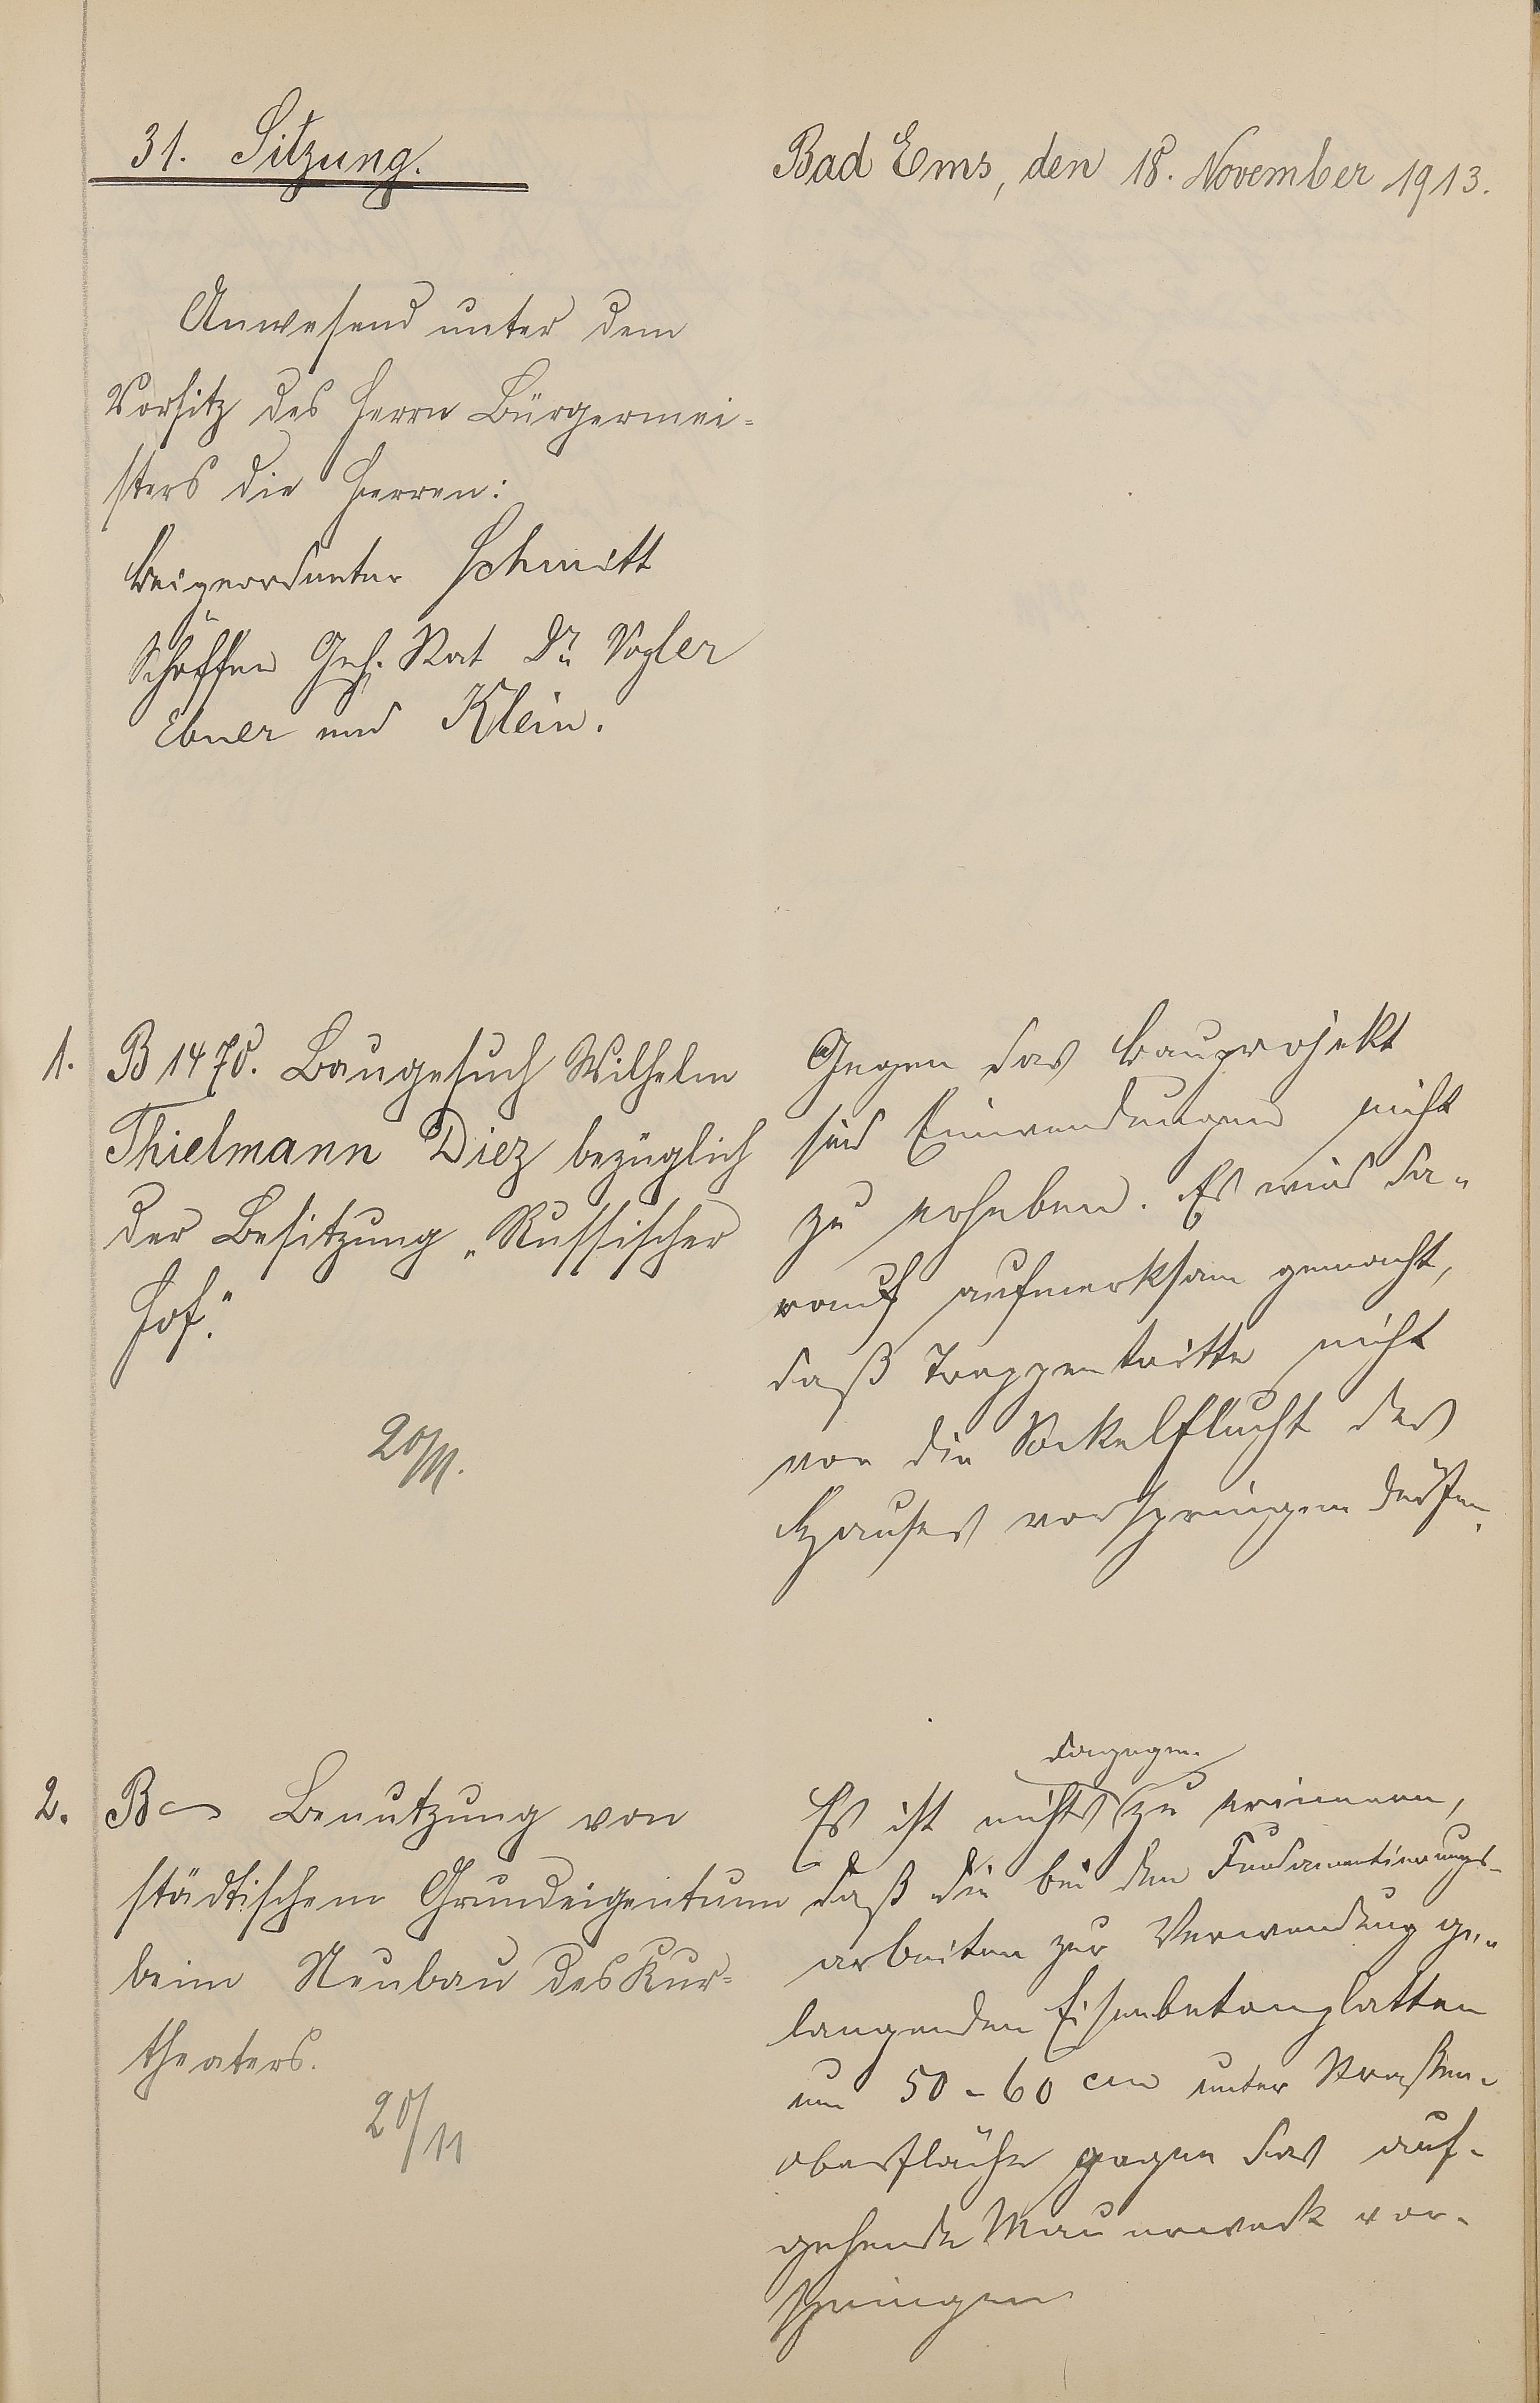 31. Sitzung.
Bad Ems, den 18. November 1913.
Anwesend unter dem
Vorsitz des Herrn Bürgermei=
sters die Herren:
Beigeordneter Schmitt
Schöffen Geh. Rat Dr. Vogler
Ebner und Klein.
1. B 1470. Baugesuch Wilhelm
Thielmann Diez bezüglich
der Besitzung „Russischer
Hof."
20/11.
Gegen das Bauprojekt
sind Einwendungen nicht
zu erheben. Es wird da-
rauf aufmerksam gemacht,
daß Treppentritte nicht
vor die Sockelflucht des
Hauses vorspringen dürfen.
2. B Benutzung von
städtischem Grundeigentum
beim Neubau des Kur=
theaters.
20/11
dagegen
Es ist nichts zu erinnern,
daß die bei den Fundamentierungs-
arbeiten zur Verwendung ge-
langenden Eisenbetonplatten
um 50-60 cm unter Straßen-
oberfläche gegen das auf-
gehende Mauerwerk vor-
springen